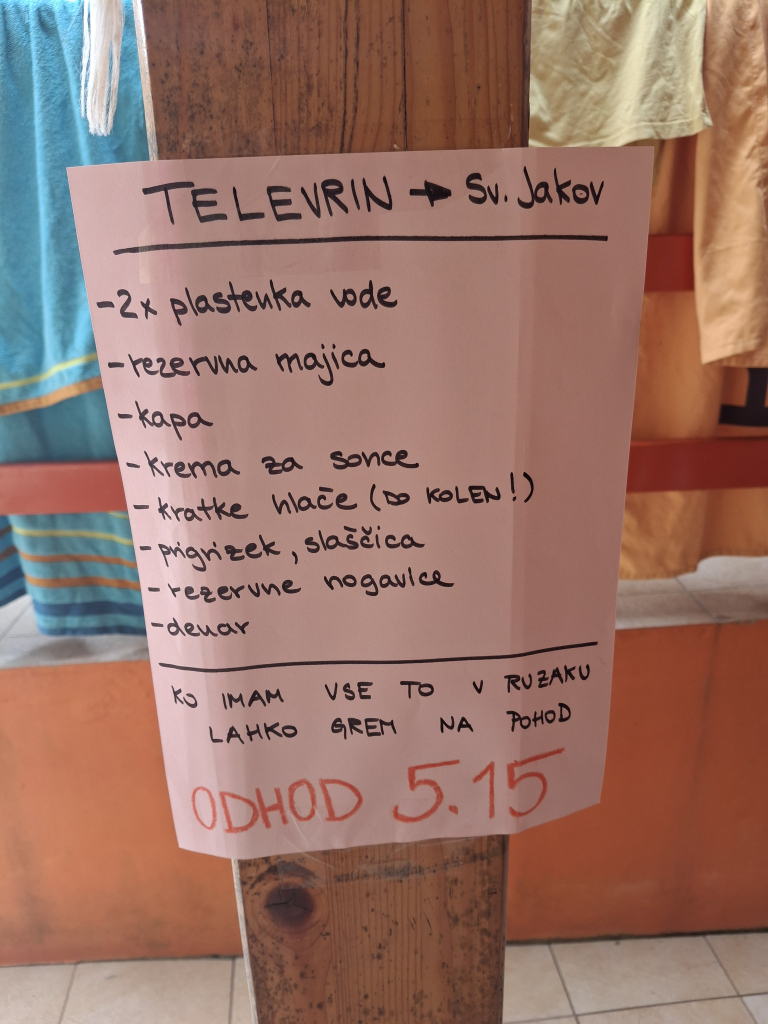 TELEVRIN → Sv. Jakov
-2x plastenka vode
-rezervna majica
-kapa
-krema za sonce
-kratke hlače (DO KOLEN!)
-prigrizek, slaščica
-rezervne nogavice
-denar
KO IMAM VSE TO V RUZAKU
LAHKO GREM NA POHOD
ODHOD 5.15